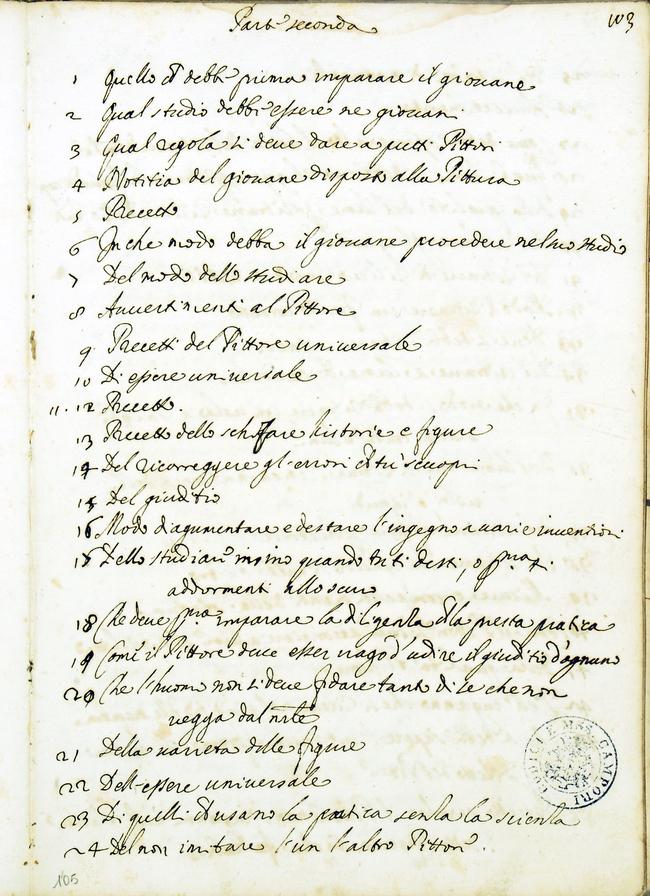 Parte seconda
103
1 Quello ch debbe prima imparare il giovane
2 Qual studio debbi essere ne giovani
3 Qual regola si deve dare a putti Pittori
4 Notitia del giovane disposto alla Pittura
5 Precetto
6 In che modo debba il giovane procedere nel suo studio
7 Del modo dello studiare
8 Avvertimenti al Pittore
9 Precetti del Pittore universale
10 Di essere universale
11. 12 Precetto.
13 Precetto dello schifare historie e figure
14 Del ricorreggere gl'errori ch tu scuopri
15 Del giuditio
16 Modo d'agumentare e destare l'ingegno a varie inventioni
17 Dello studiare insino quando ti desti, o pma t.
addormenti allo scuro
18 Che deve pma imparare la diligenza ch la presta pratica
19 Come il Pittore deve esser vago d'udire il giuditio d'ognuno
20 Che l'huomo non si deve fidare tanto di se che non
vegga dal nrle
21 Della varieta delle figure
22 Dell'essere universale
23 Di quelli ch usano la pratica senza la scienza
24 Del non imitare l'un l'altro Pittore.
CODICI E MSS. CAMPORI
105